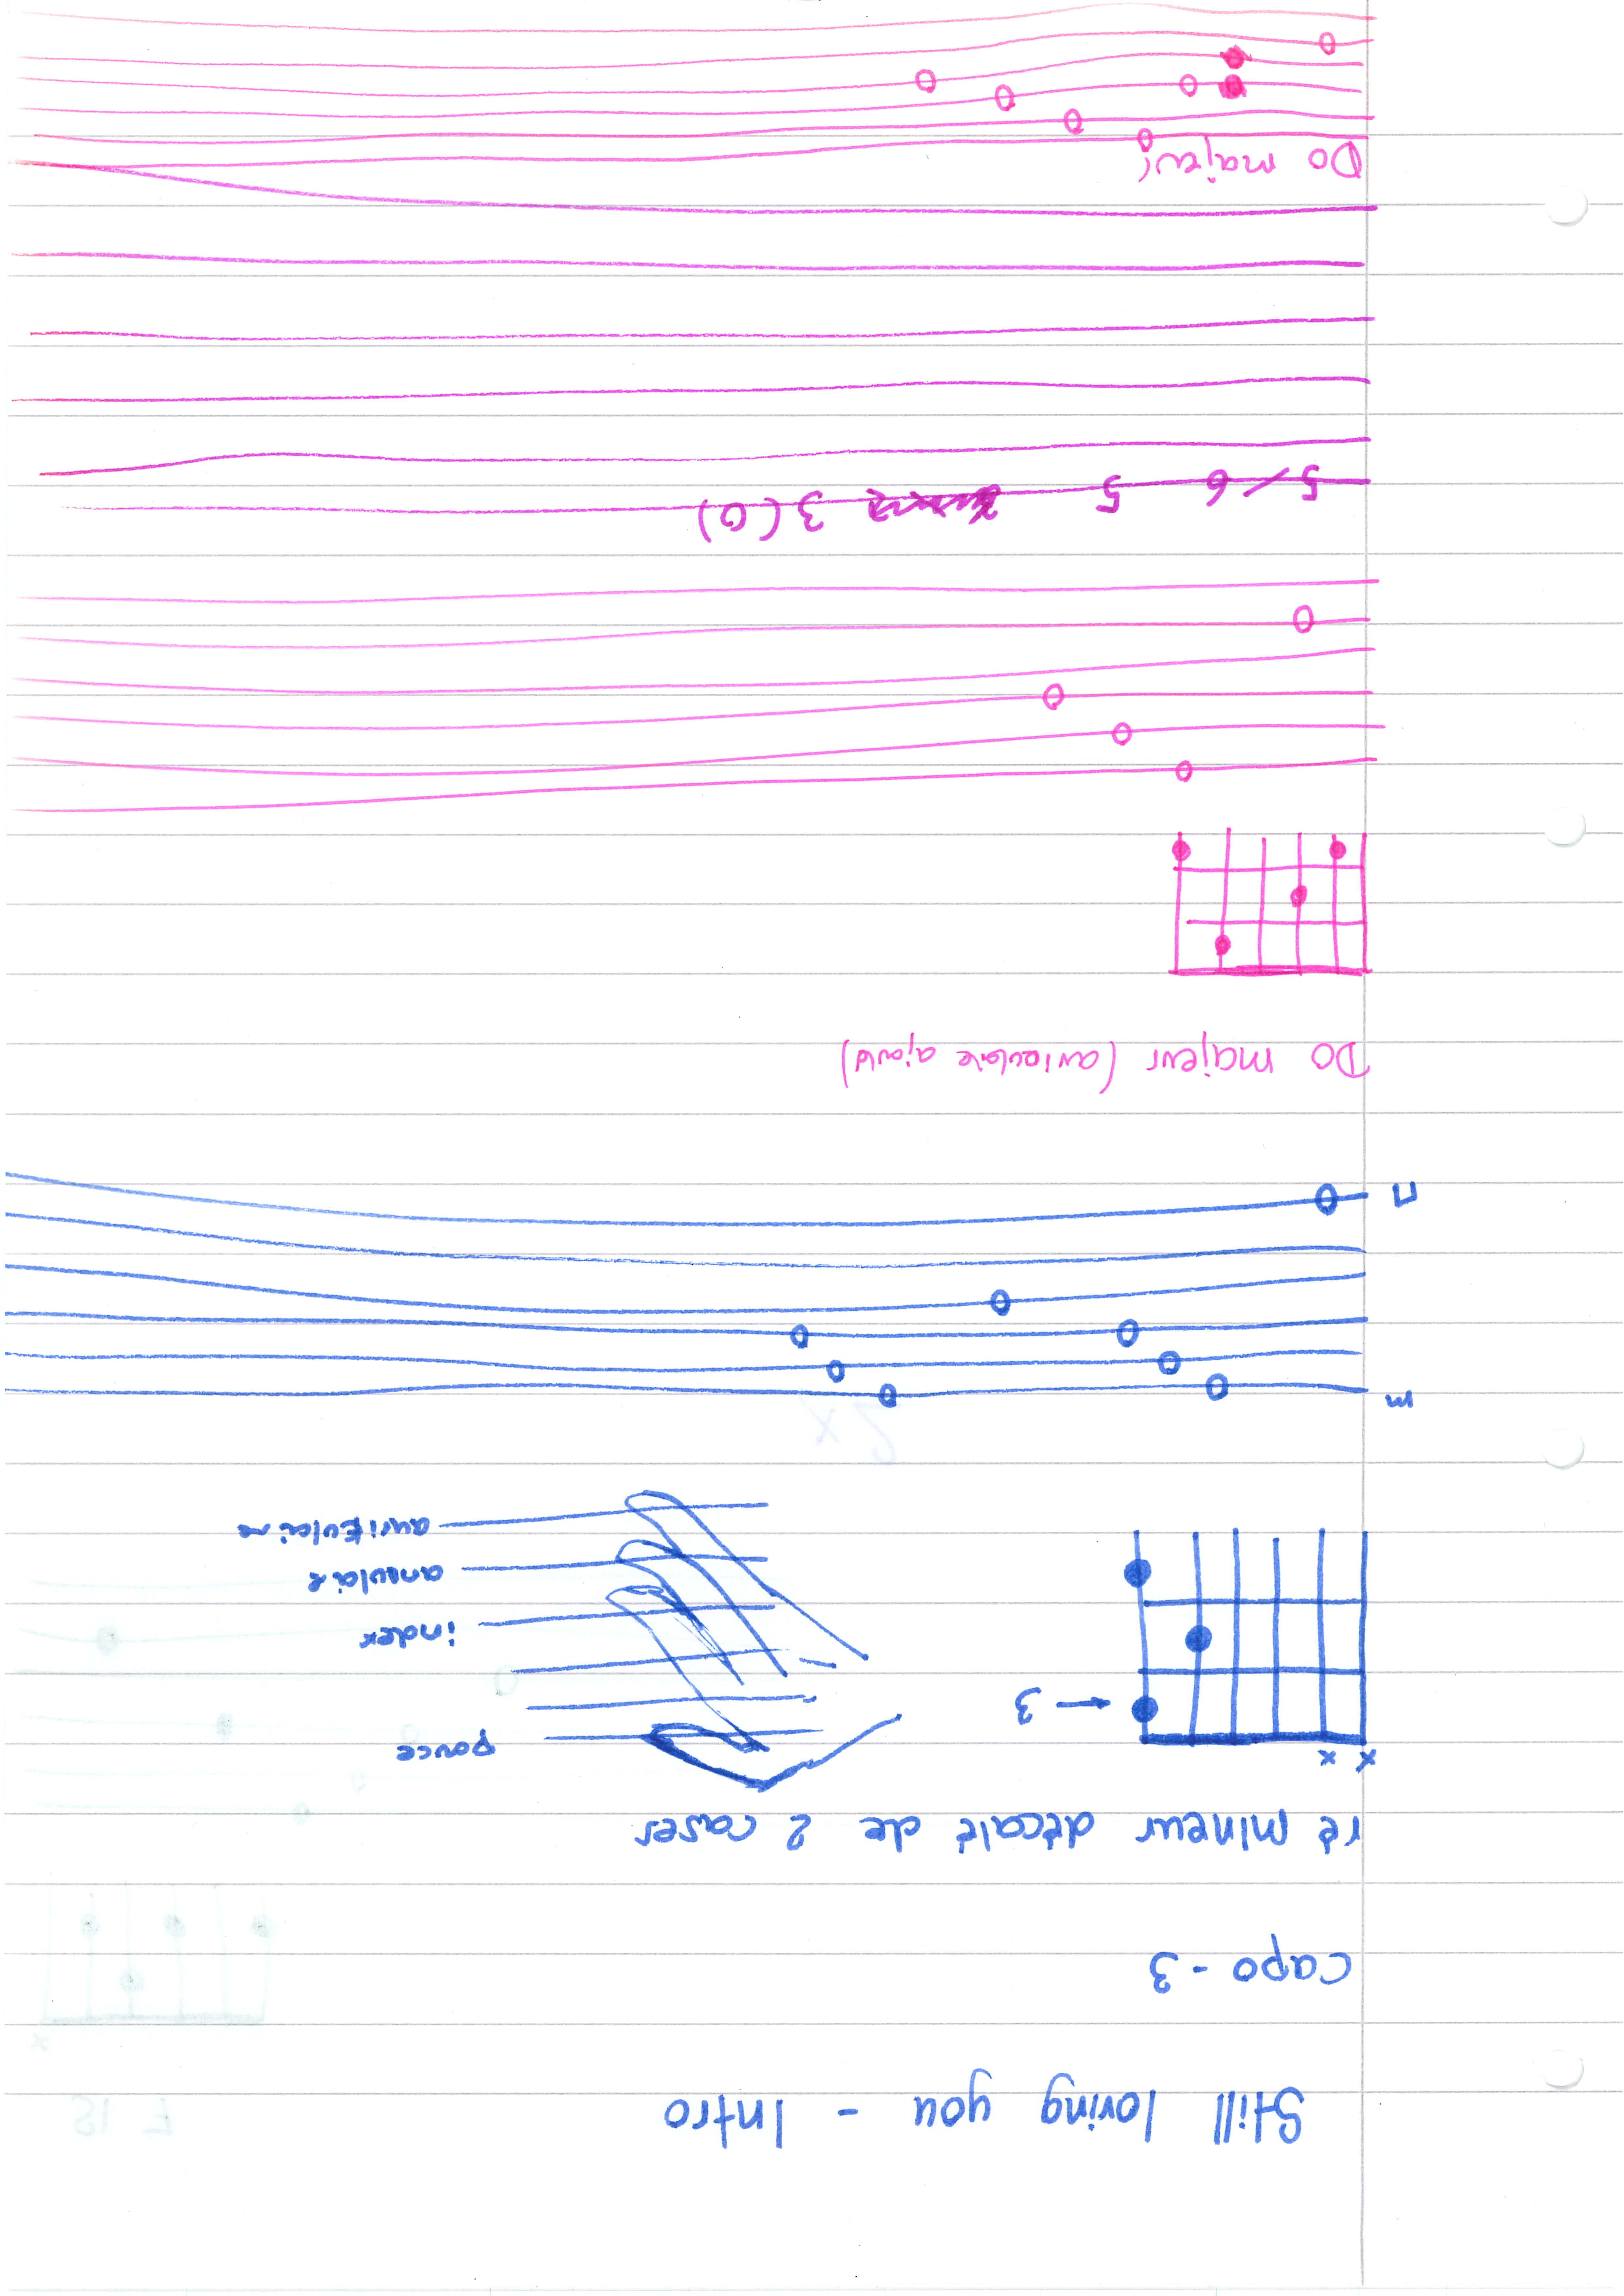 Still loving you - Intro
Capo - 3
ré mineur décalé de 2 cases
x x
3
pouce
index
annulaire
auriculaire
m
П
Do majeur (auriculaire ajouté)
5/6 5 3 (0)
Do majeur